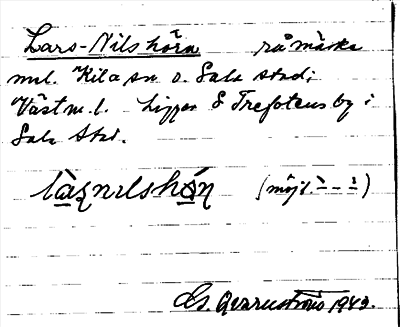 Lars-Nilshörn råmärke
mel. Kila sn o. Sala stad;
Västm. l. Ligger S Trefotens by i
Sala stad.
làʂnɪlshǿɳ (möjl. ̀ – ́)
Qvarnström 1943.